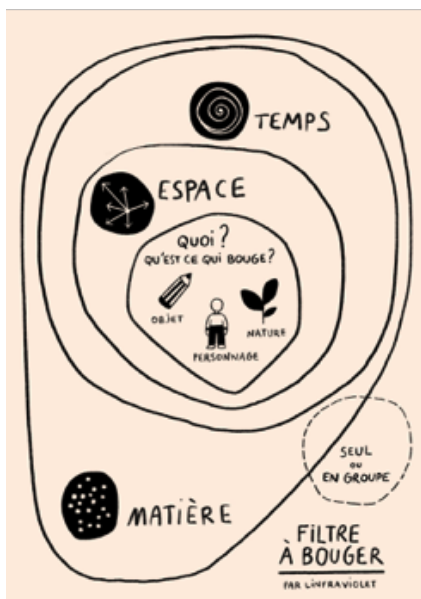 TEMPS
ESPACE
QUOI?
QU'EST CE QUI BOUGE?
OBJET
NATURE
PERSONNAGE
SEUL
OU
EN GROUPE
MATIÈRE
FILTRE
À BOUGER
PAR L'INFRAVIOLET